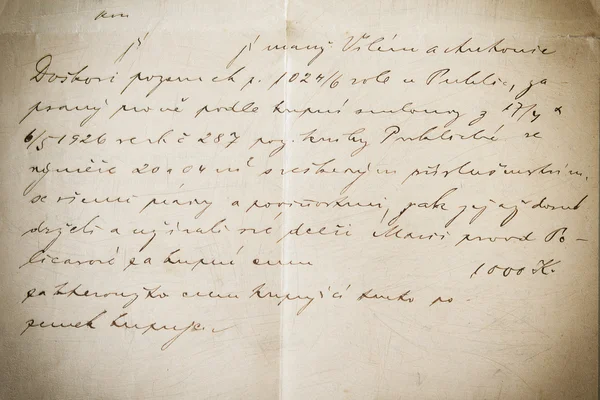 jí manž. Vilém a Antonie
Doškovi pozemek p. 1024/6 role v Puklic, za-
psaný prvně podle kupní smlouvy z 17/4 a
6/5 1926 ve vl. č 287 poz. knihy Puklické ve
výměře 20 a 04 m² s veškerým příslušenstvím,
se všemi právy a povinnostmi, jak jej až dosud
drželi a užívali své dceři Marii provd. Po-
licarové za kupní cenu 1000 K.
za kteroužto cenu kupující tento po-
zemek kupuje.